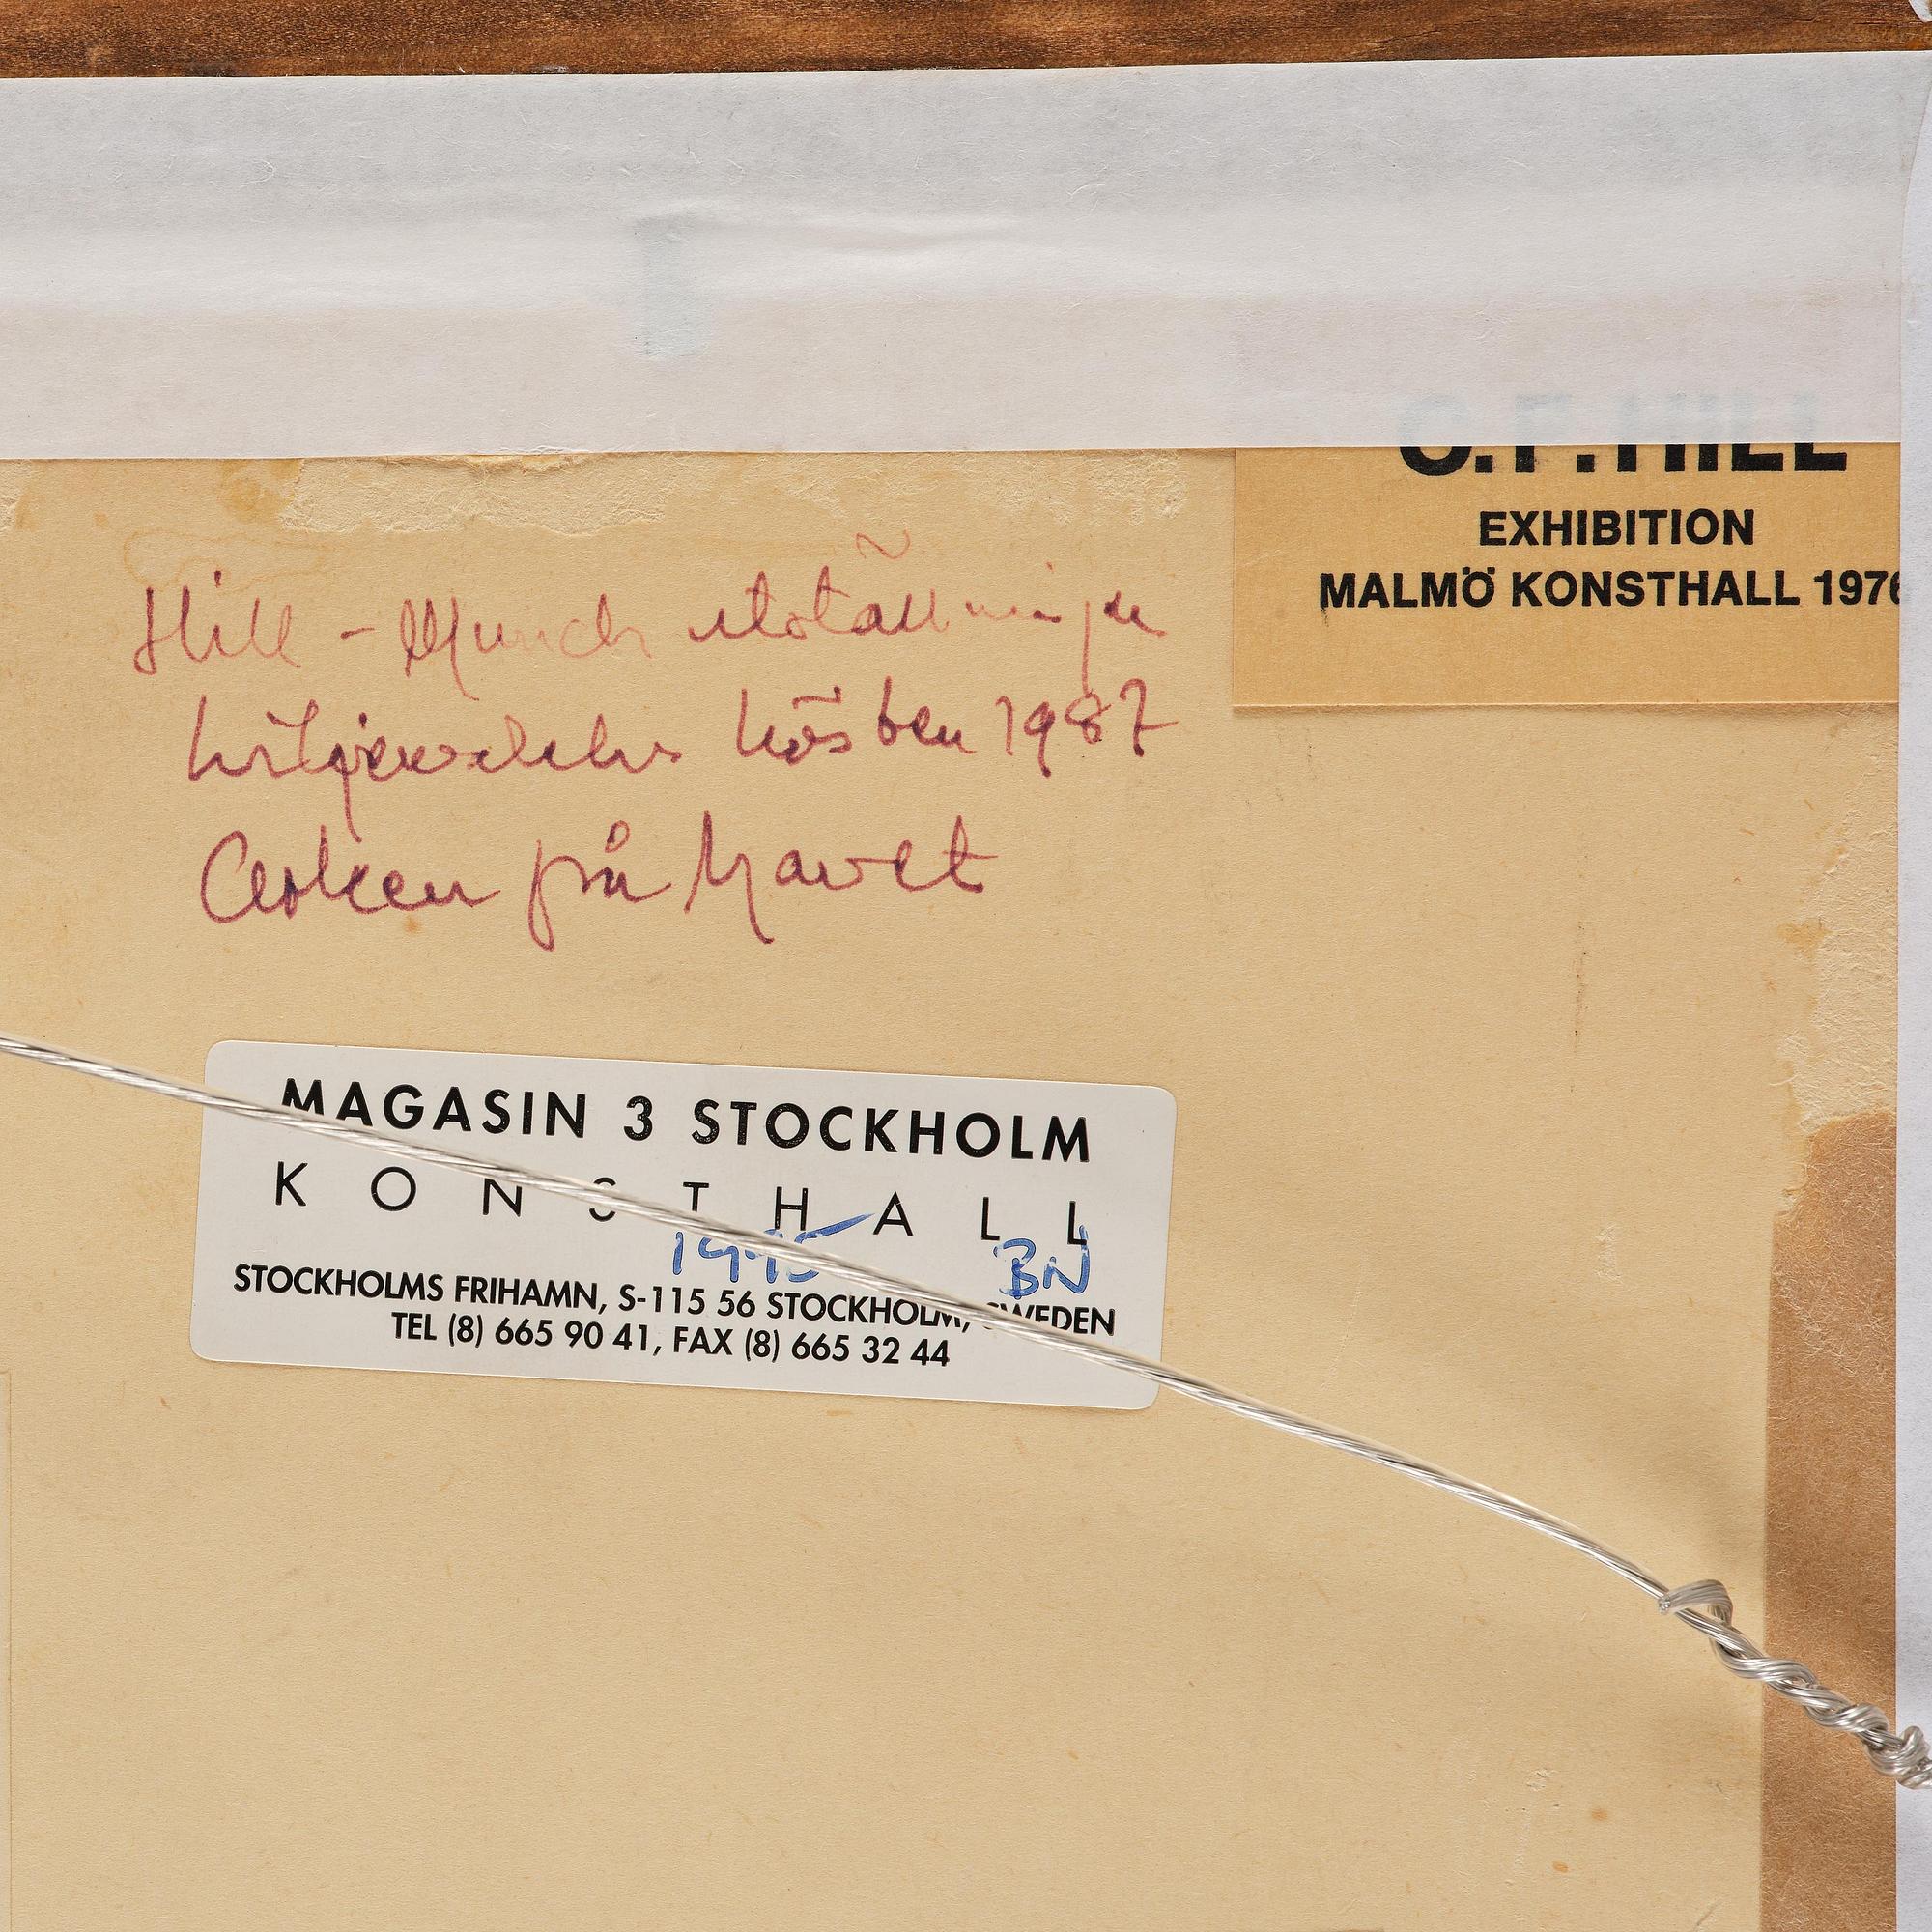 C.F. HILL
EXHIBITION
MALMÖ KONSTHALL 1976
Hill - Munch utställningen
Liljevalchs hösten 1987
Asken på havet
MAGASIN 3 STOCKHOLM
KONSTHALL
1995 BN
STOCKHOLMS FRIHAMN, S-115 56 STOCKHOLM, SWEDEN
TEL (8) 665 90 41, FAX (8) 665 32 44